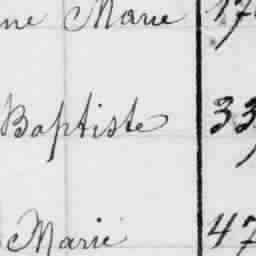 ne Marie 17
Baptiste 33
Marie 47